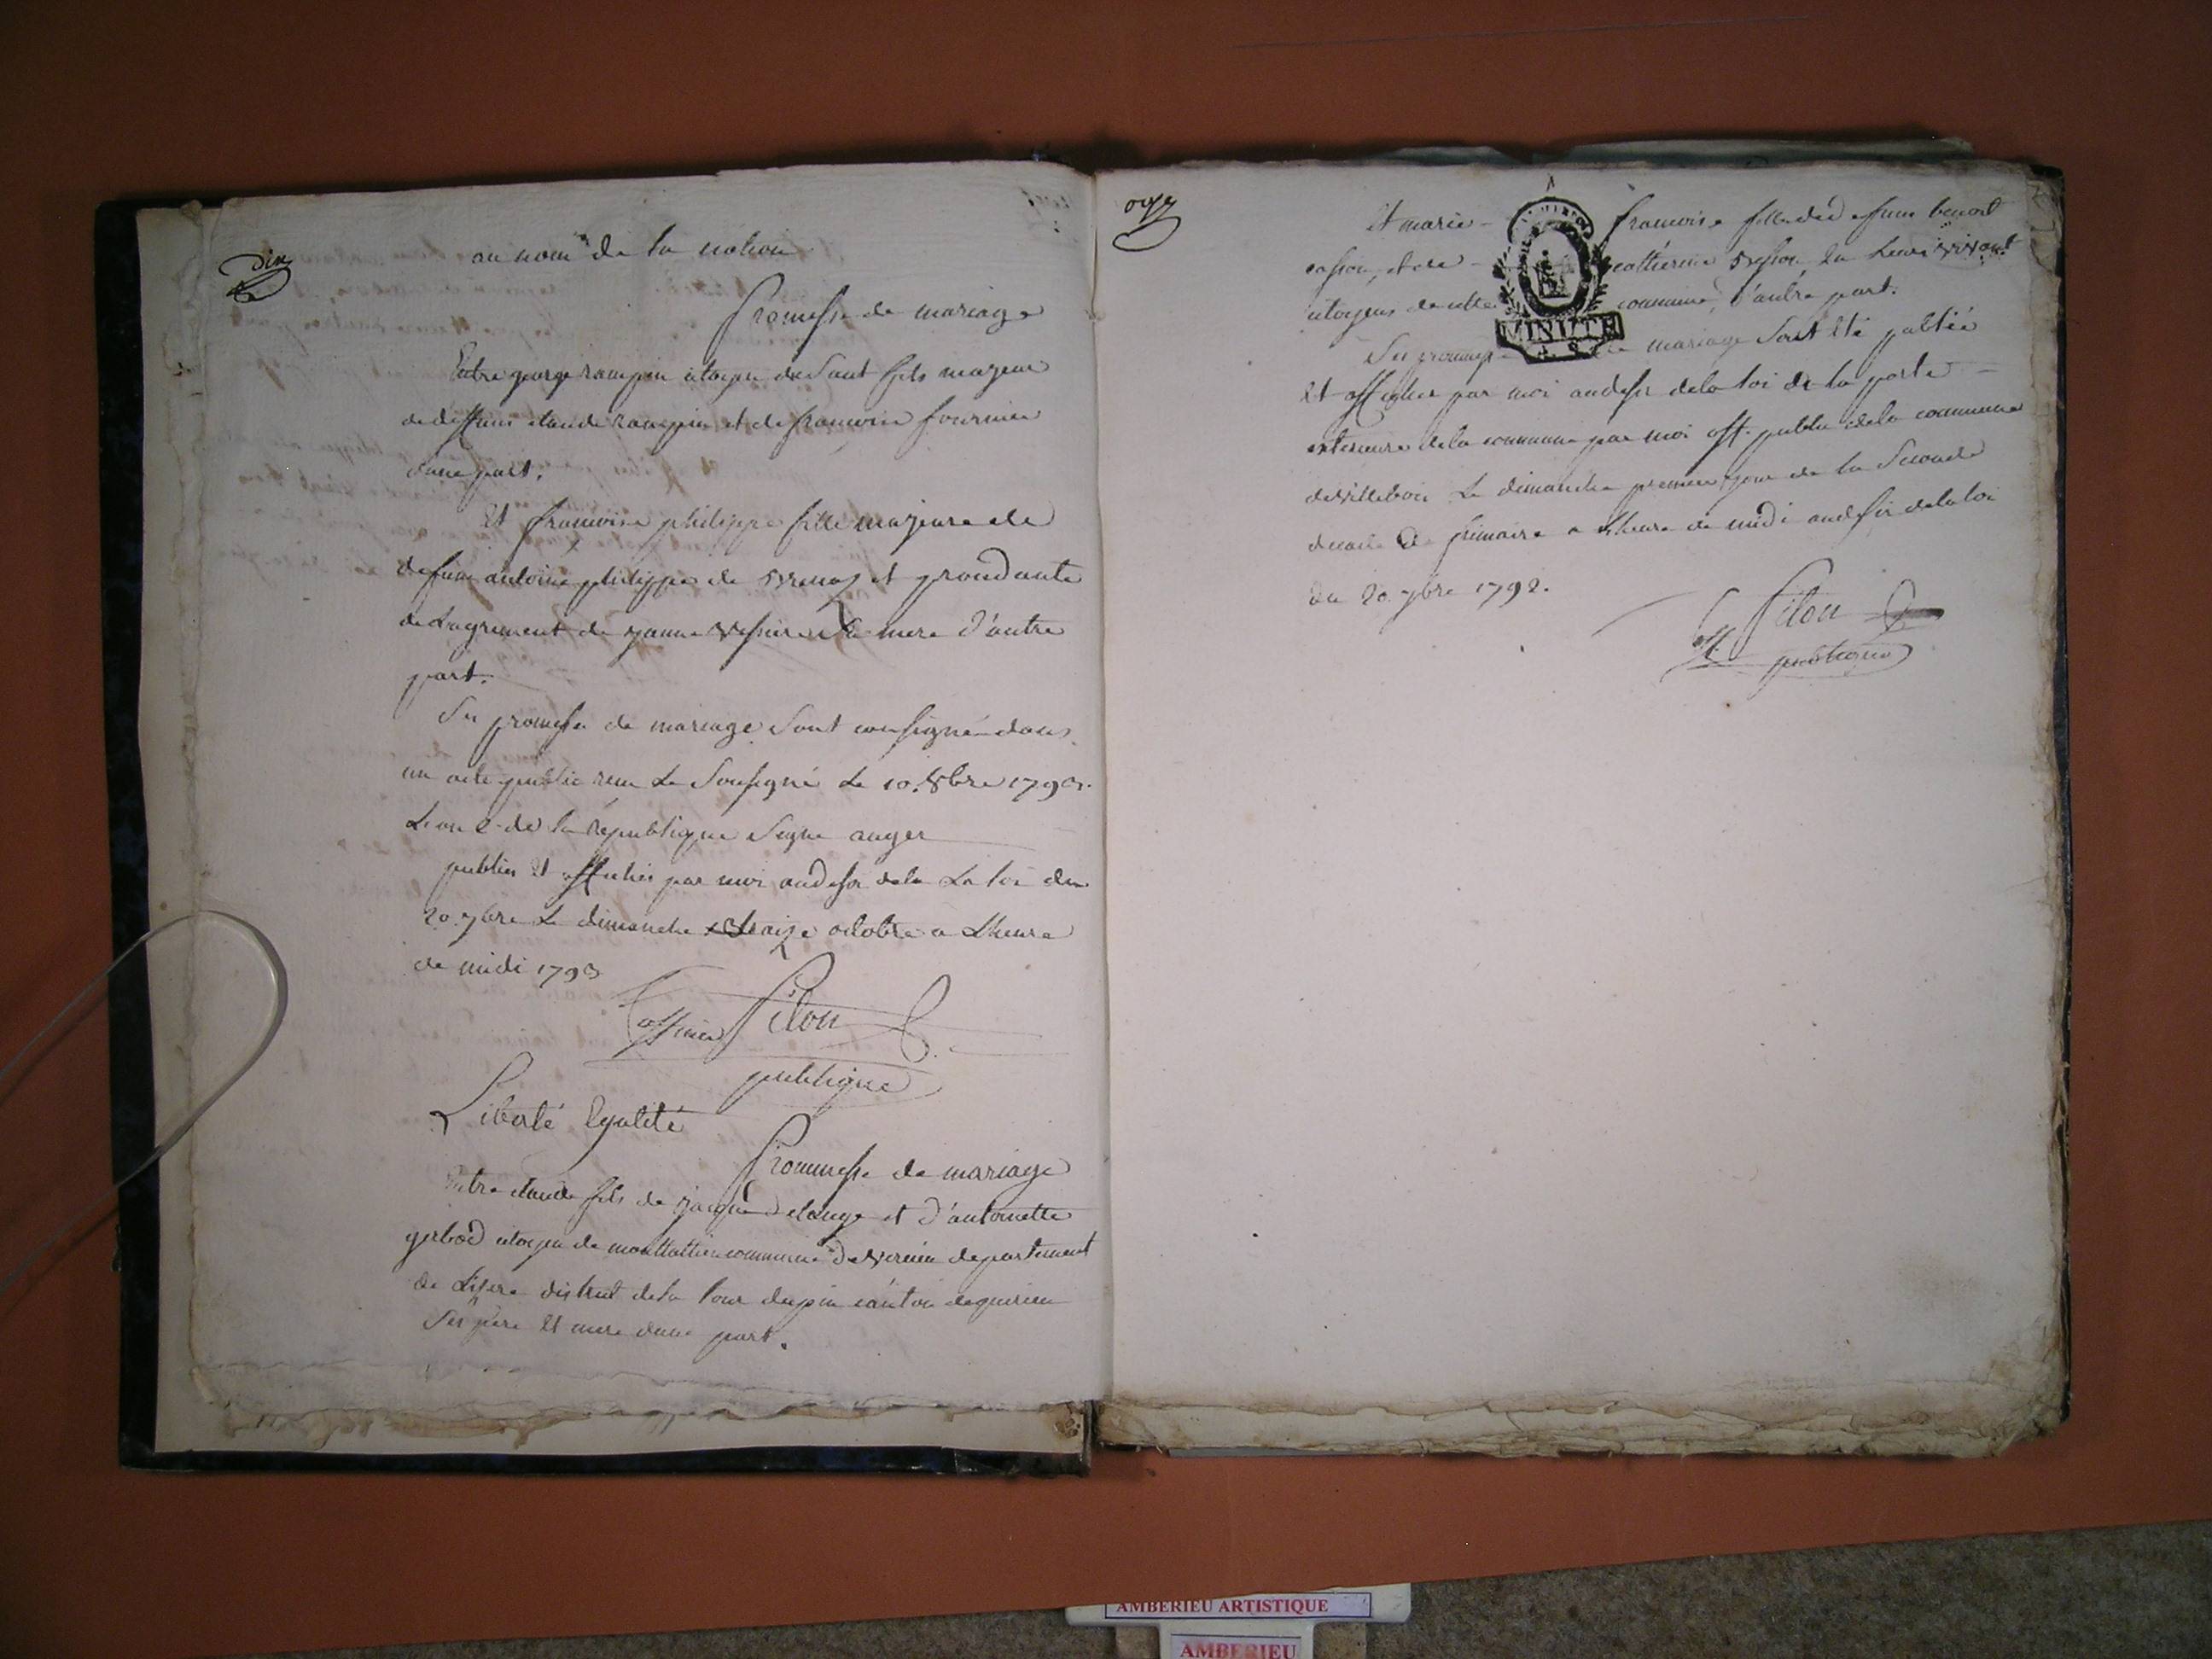 dix
au nom de la nation
Promesse de mariage
Entre george rampin citoyen de Saut fils majeur
de deffunt claude rampin et de francoise fournier
d'une part.
Et francoise philippe fille majeure de
defunt antoine philippe de et procedante
de Lagrement de janne sa mere d'autre
part.
Ses promesse de mariage Sont consigné dans
un acte public recu Le Sousigné Le 10. 8bre 1793.
L'an 2 de la république Signe auger
publier Et afficher par moi au desir de la La loi du
20. 7bre Le dimanche traize octobre a L'heure
de midi 1793
officier Pilon
publique
Liberté Egalité
Prommesse de mariage
Entre claude fils de jacque delange et d'antoinette
gerbod citoyen de commune de departement
de Lisere district de la tour dupin canton de quirieu
Ses père Et mere d'une part.
onze
Et marie - francoise fille de defunt benoit
et de - catherine de Leurs vivant
citoyens de cette commune, d'autre part.
Ses promesse de mariage Sont Eté publiée
Et afficher par moi au desir de la loi de la porte
exterieure de la commune par moi off. public de la commune
de villebois Le dimanche premier jour de la Seconde
decade De frimaire a L'heure de midi au desir de la loi
du 20. 7bre 1792.
Pilon
off. publique
MINUTE
AMBERIEU ARTISTIQUE
AMBERIEU